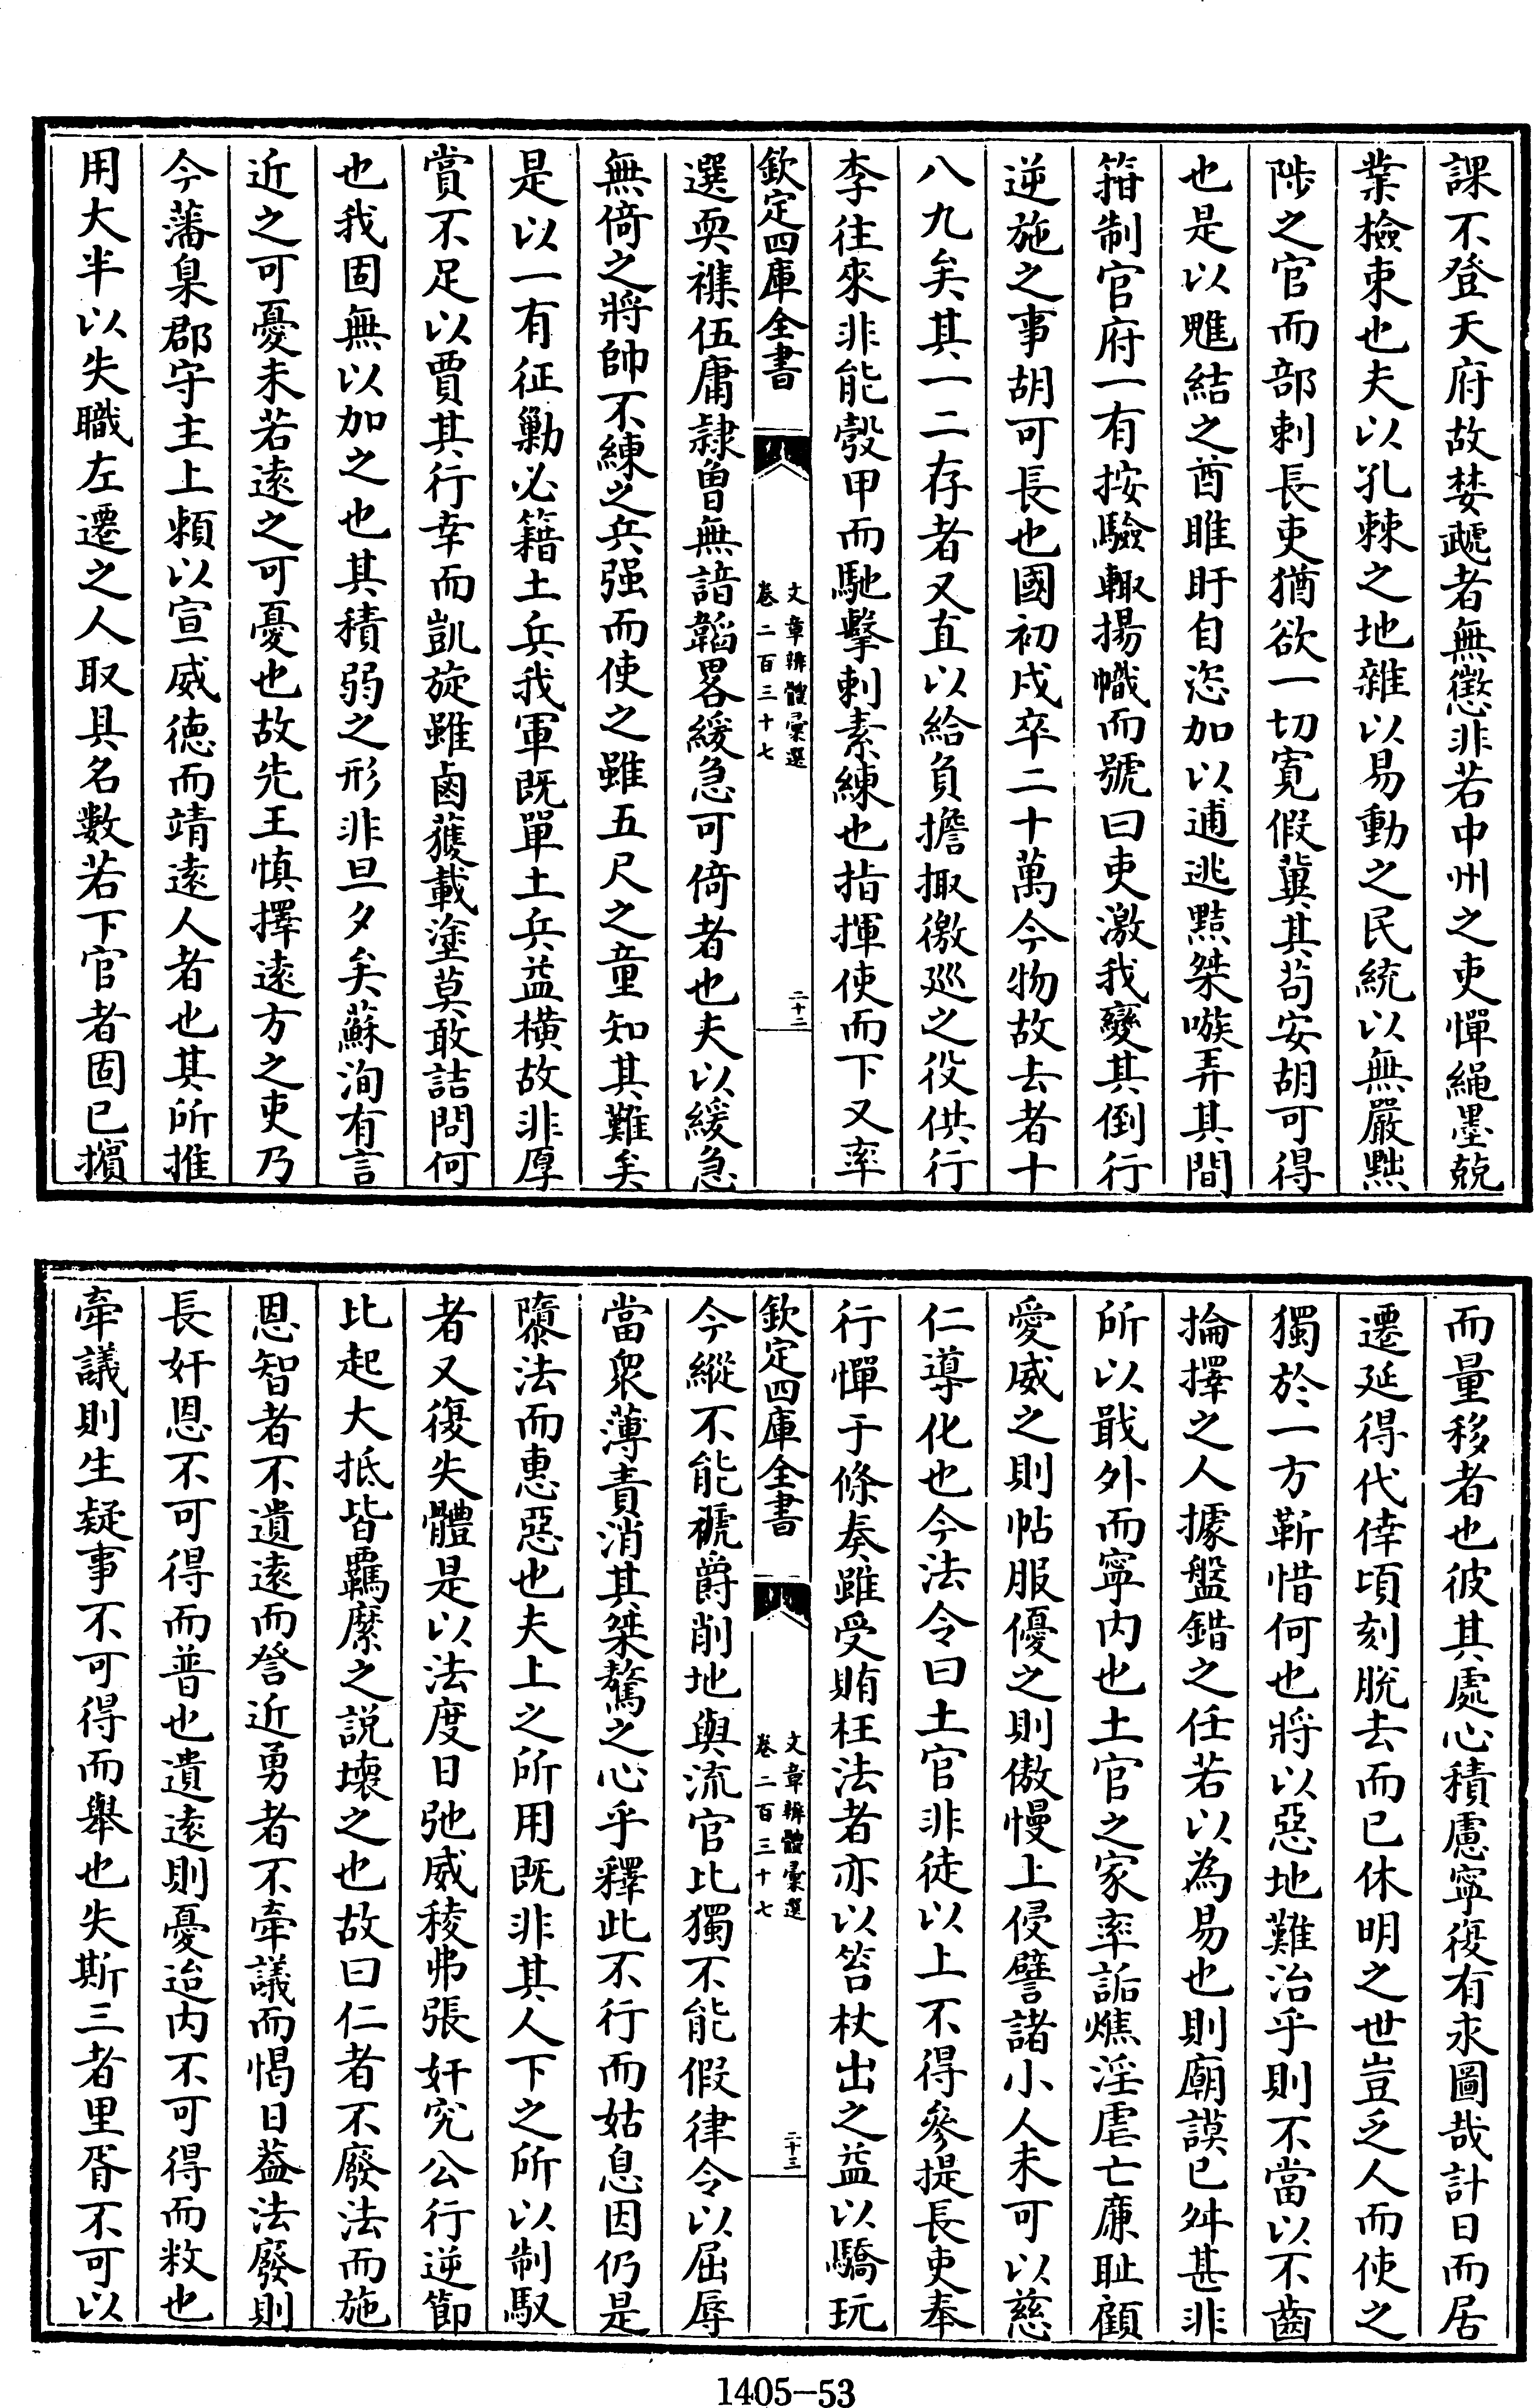 課不登天府故婪虣者無懲非若中州之吏憚繩墨兢
業檢束也夫以孔棘之地雜以易動之民統以無嚴黜
陟之官而部刺長吏猶欲一切寛假冀其苟安胡可得
也是以魋結之酋睢盱自恣加以逋逃黠桀嗾弄其間
箝制官府一有按驗輙揚幟而號曰吏激我變其倒行
逆施之事胡可長也國初戍卒二十萬今物故去者十
八九矣其一二存者又直以給負擔掫徼廵之役供行
李往來非能彀甲而馳擊刺素練也指揮使而下又率
欽定四庫全書
文章辨體彙選
卷二百三十七
二十二
選耎襍伍庸隷曽無諳韜畧緩急可倚者也夫以緩急
無倚之將帥不練之兵强而使之雖五尺之童知其難矣
是以一有征勦必籍土兵我軍既單土兵益横故非厚
賞不足以賈其行幸而凱旋雖鹵獲載塗莫敢詰問何
也我固無以加之也其積弱之形非旦夕矣蘇洵有言
近之可憂未若遠之可憂也故先王慎擇遠方之吏乃
今藩臬郡守主上頼以宣威徳而靖遠人者也其所推
用大半以失職左遷之人取具名數若下官者固已擯
而量移者也彼其處心積慮寧復有求圖哉計日而居
遷延得代倖頃刻脱去而已休明之世豈乏人而使之
獨於一方靳惜何也將以惡地難治乎則不當以不齒
掄擇之人據盤錯之任若以為易也則廟謨已舛甚非
所以戢外而寧内也土官之家率詬燋淫虐亡廉耻顧
愛威之則帖服優之則傲慢上侵譬諸小人未可以慈
仁導化也今法令曰土官非徒以上不得參提長吏奉
行憚于條奏雖受賄枉法者亦以笞杖出之益以驕玩
欽定四庫全書
文章辨體彙選
卷二百三十七
二十三
今縱不能褫爵削地與流官比獨不能假律令以屈辱
當衆薄責消其桀驁之心乎釋此不行而姑息因仍是
隳法而惠惡也夫上之所用既非其人下之所以制馭
者又復失體是以法度日弛威稜弗張奸宄公行逆節
比起大抵皆羈縻之説壊之也故曰仁者不廢法而施
恩智者不遺遠而詧近勇者不牽議而愒日葢法廢則
長奸恩不可得而普也遺遠則憂迨内不可得而敉也
牽議則生疑事不可得而舉也失斯三者里胥不可以
1405-53